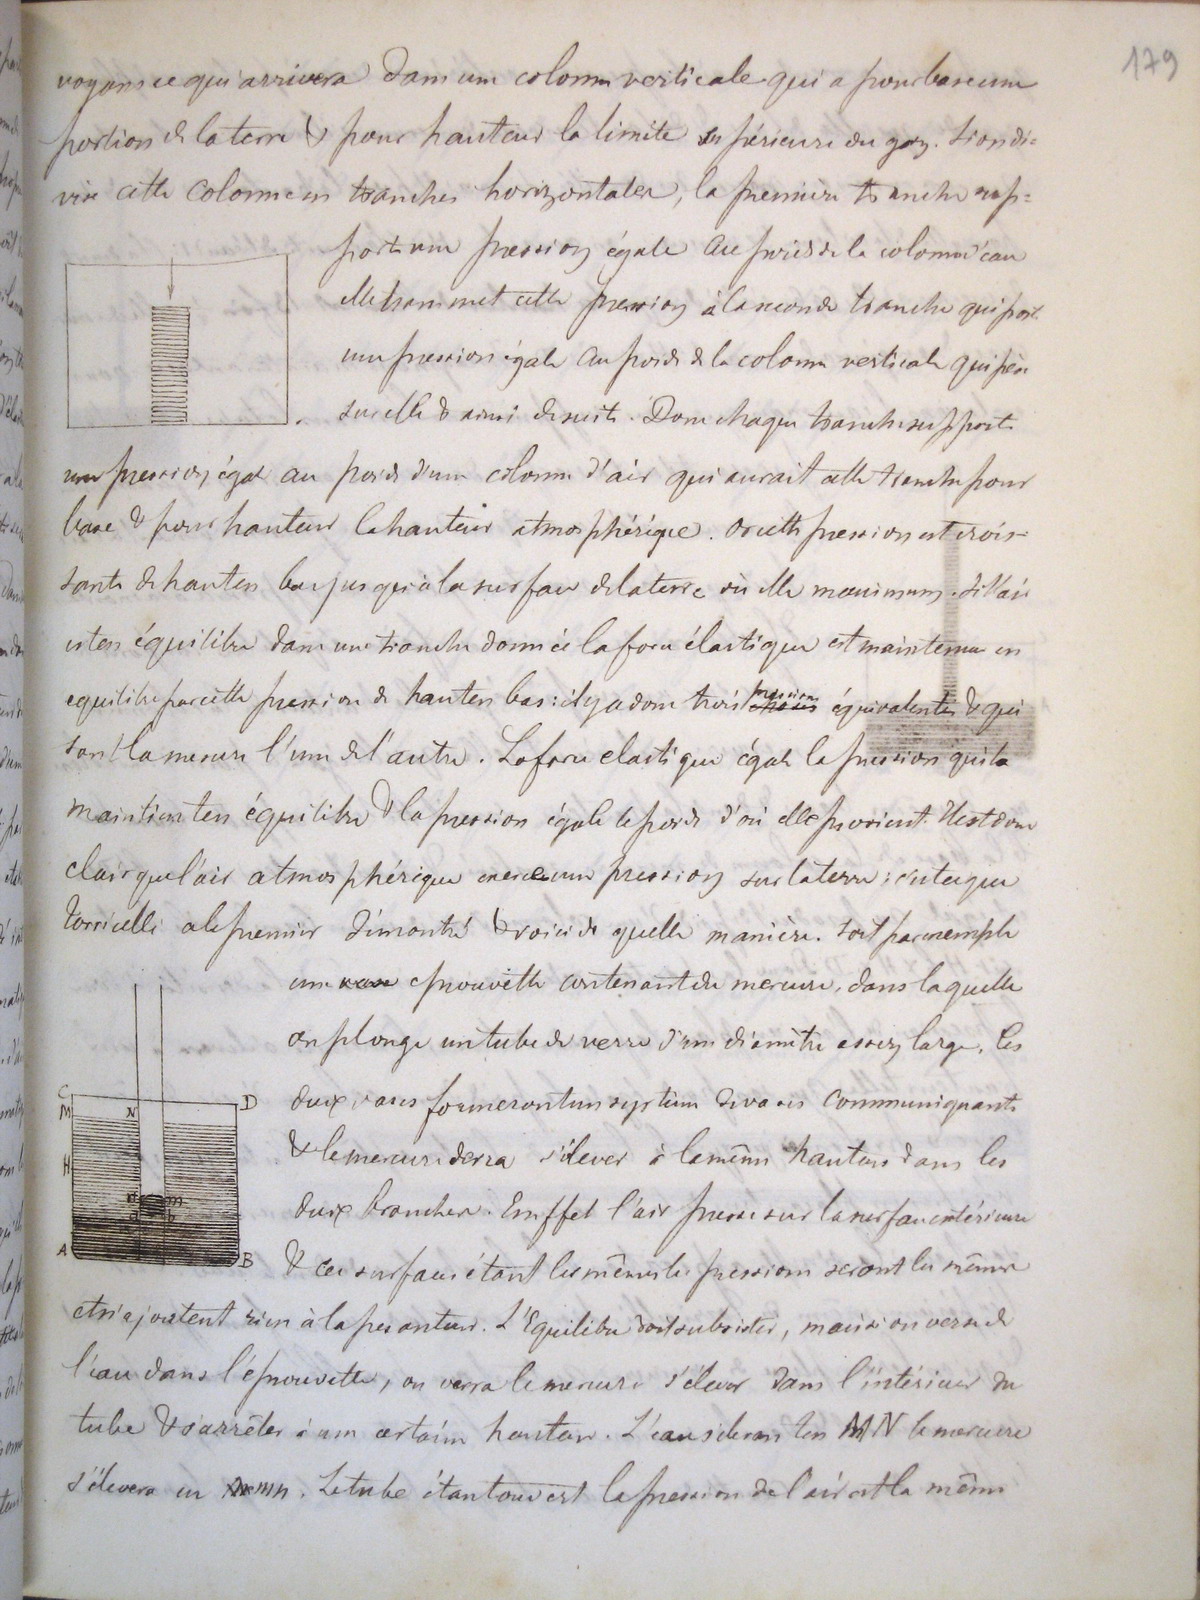 179
voyons ce qui arrivera dans une colonne verticale qui a pour base une
portion de la terre & pour hauteur la limite supérieure du gaz. Si on di=
vise cette colonne en tranches horizontales, la première tranche sup=
porte une pression égale au poids de la colonne d'eau
elle transmet cette pression à la seconde tranche qui porte
une pression égale au poids de la colonne verticale qui pèse
sur elle & ainsi de suite. Donc chaque tranche supporte
une pression égale au poids d'une colonne d'air qui aurait cette tranche pour
base & pour hauteur la hauteur atmosphérique. Or cette pression est crois-
sante de haut en bas jusqu'à la surface de la terre où elle maximum. Si l'air
est en équilibre dans une tranche donnée la force élastique est maintenue en
equilibre par cette pression de haut en bas: il y a donc trois pression choses équivalentes & qui
sont la mesure l'une de l'autre. La force elastique égale la pression qui la
maintient en équilibre & la pression égale le poids d'où elle provient. Il est donc
clair que l'air atmosphérique exerce une pression sur la terre: c'est ce que
Torricelli a le premier démontré & voici de quelle manière. Soit par exemple
une vase eprouvette contenant du mercure, dans laquelle
on plonge un tube de verre d'un diamètre assez large. Les
deux vases formeront un système de vases communiquants
& le mercure devra s'élever à la même hauteur dans les
deux branches. En effet l'air presse sur la surface intérieure
& ces surfaces étant les mêmes les pressions seront les mêmes
et n'ajoutent rien à la pesanteur. L'Equilibre doit subsister, mais si on verse de
l'eau dans l'éprouvette, on verra le mercure s'élever dans l'intérieur du
tube & s'arrêter à une certaine hauteur. L'eau s'élevant en MN le mercure
s'élevera en mn. Le tube étant ouvert la pression de l'air est la même
C
D
M
N
H
n
m
a
b
A
B